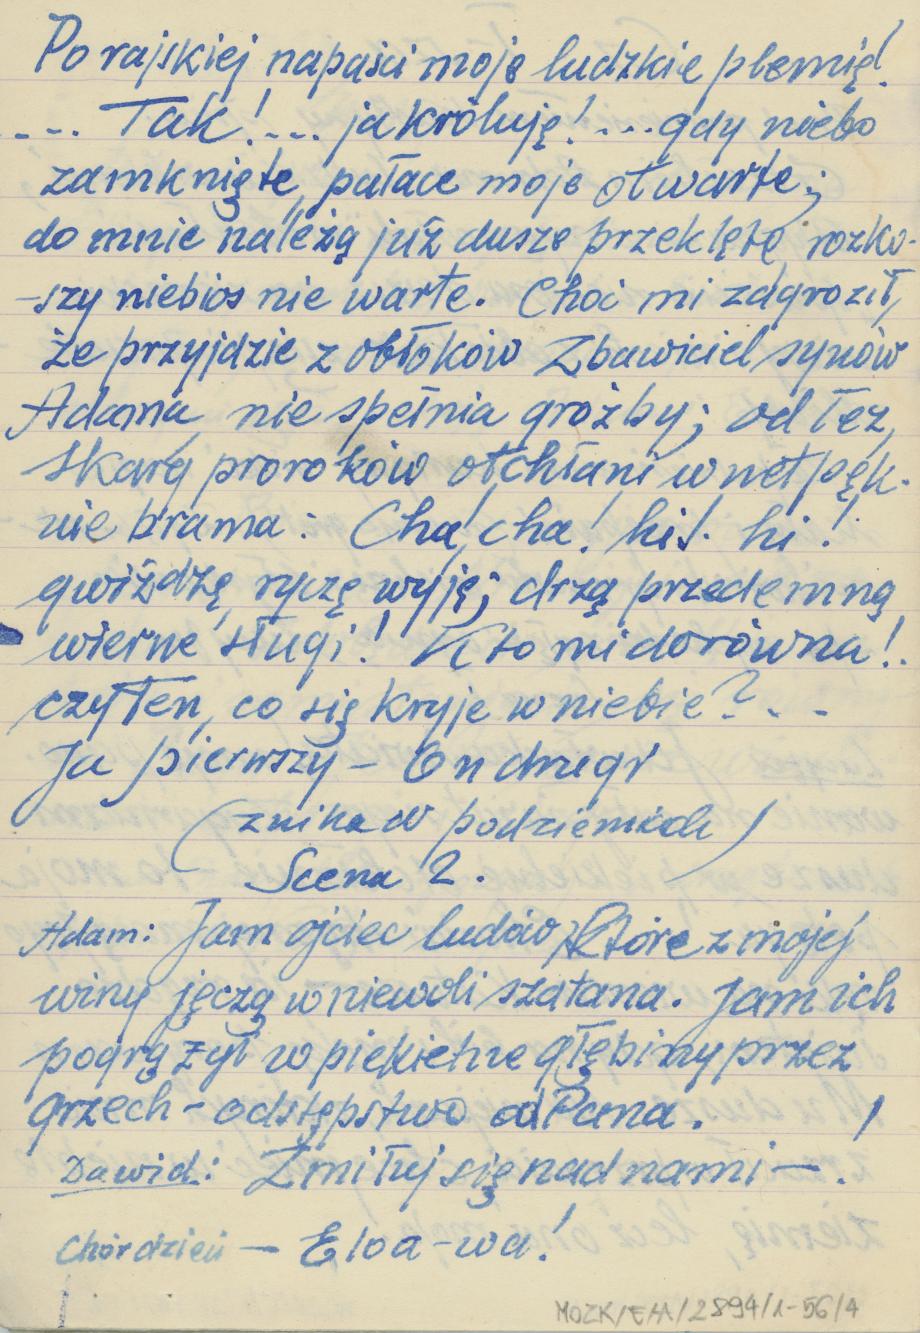 Po rajskiej napaści moje ludzkie plemię!
.... Tak! .... ja króluję! .... gdy niebo
zamknięte, pałace moje otwarte;
do mnie należą już dusze przeklęte, rozko-
-szy niebios nie warte. Choć mi zagroził,
że przyjdzie z obłoków Zbawiciel synów
Adama, nie spełnia groźby; od łez,
skarg proroków otchłani wnet pęk-
nie brama: Cha, cha! hi! hi!
gwiżdżę, ryczę, wyję; drżą przedemną
wierne sługi! Kto mi dorówna!
czy Ten, co się kryje w niebie? - -
Ja pierwszy - On drugi
(znika w podziemiach)
Scena 2.
Adam: Jam ojciec ludów, które z mojej
winy jęczą w niewoli szatana. Jam ich
pogrążył w piekielne głębiny przez
grzech - odstępstwo od Pana. !
Dawid: Zmiłuj się nad nami -.
Chór dzieci - Eloa-wa!
MOZK/EAA/2894/1-56/4